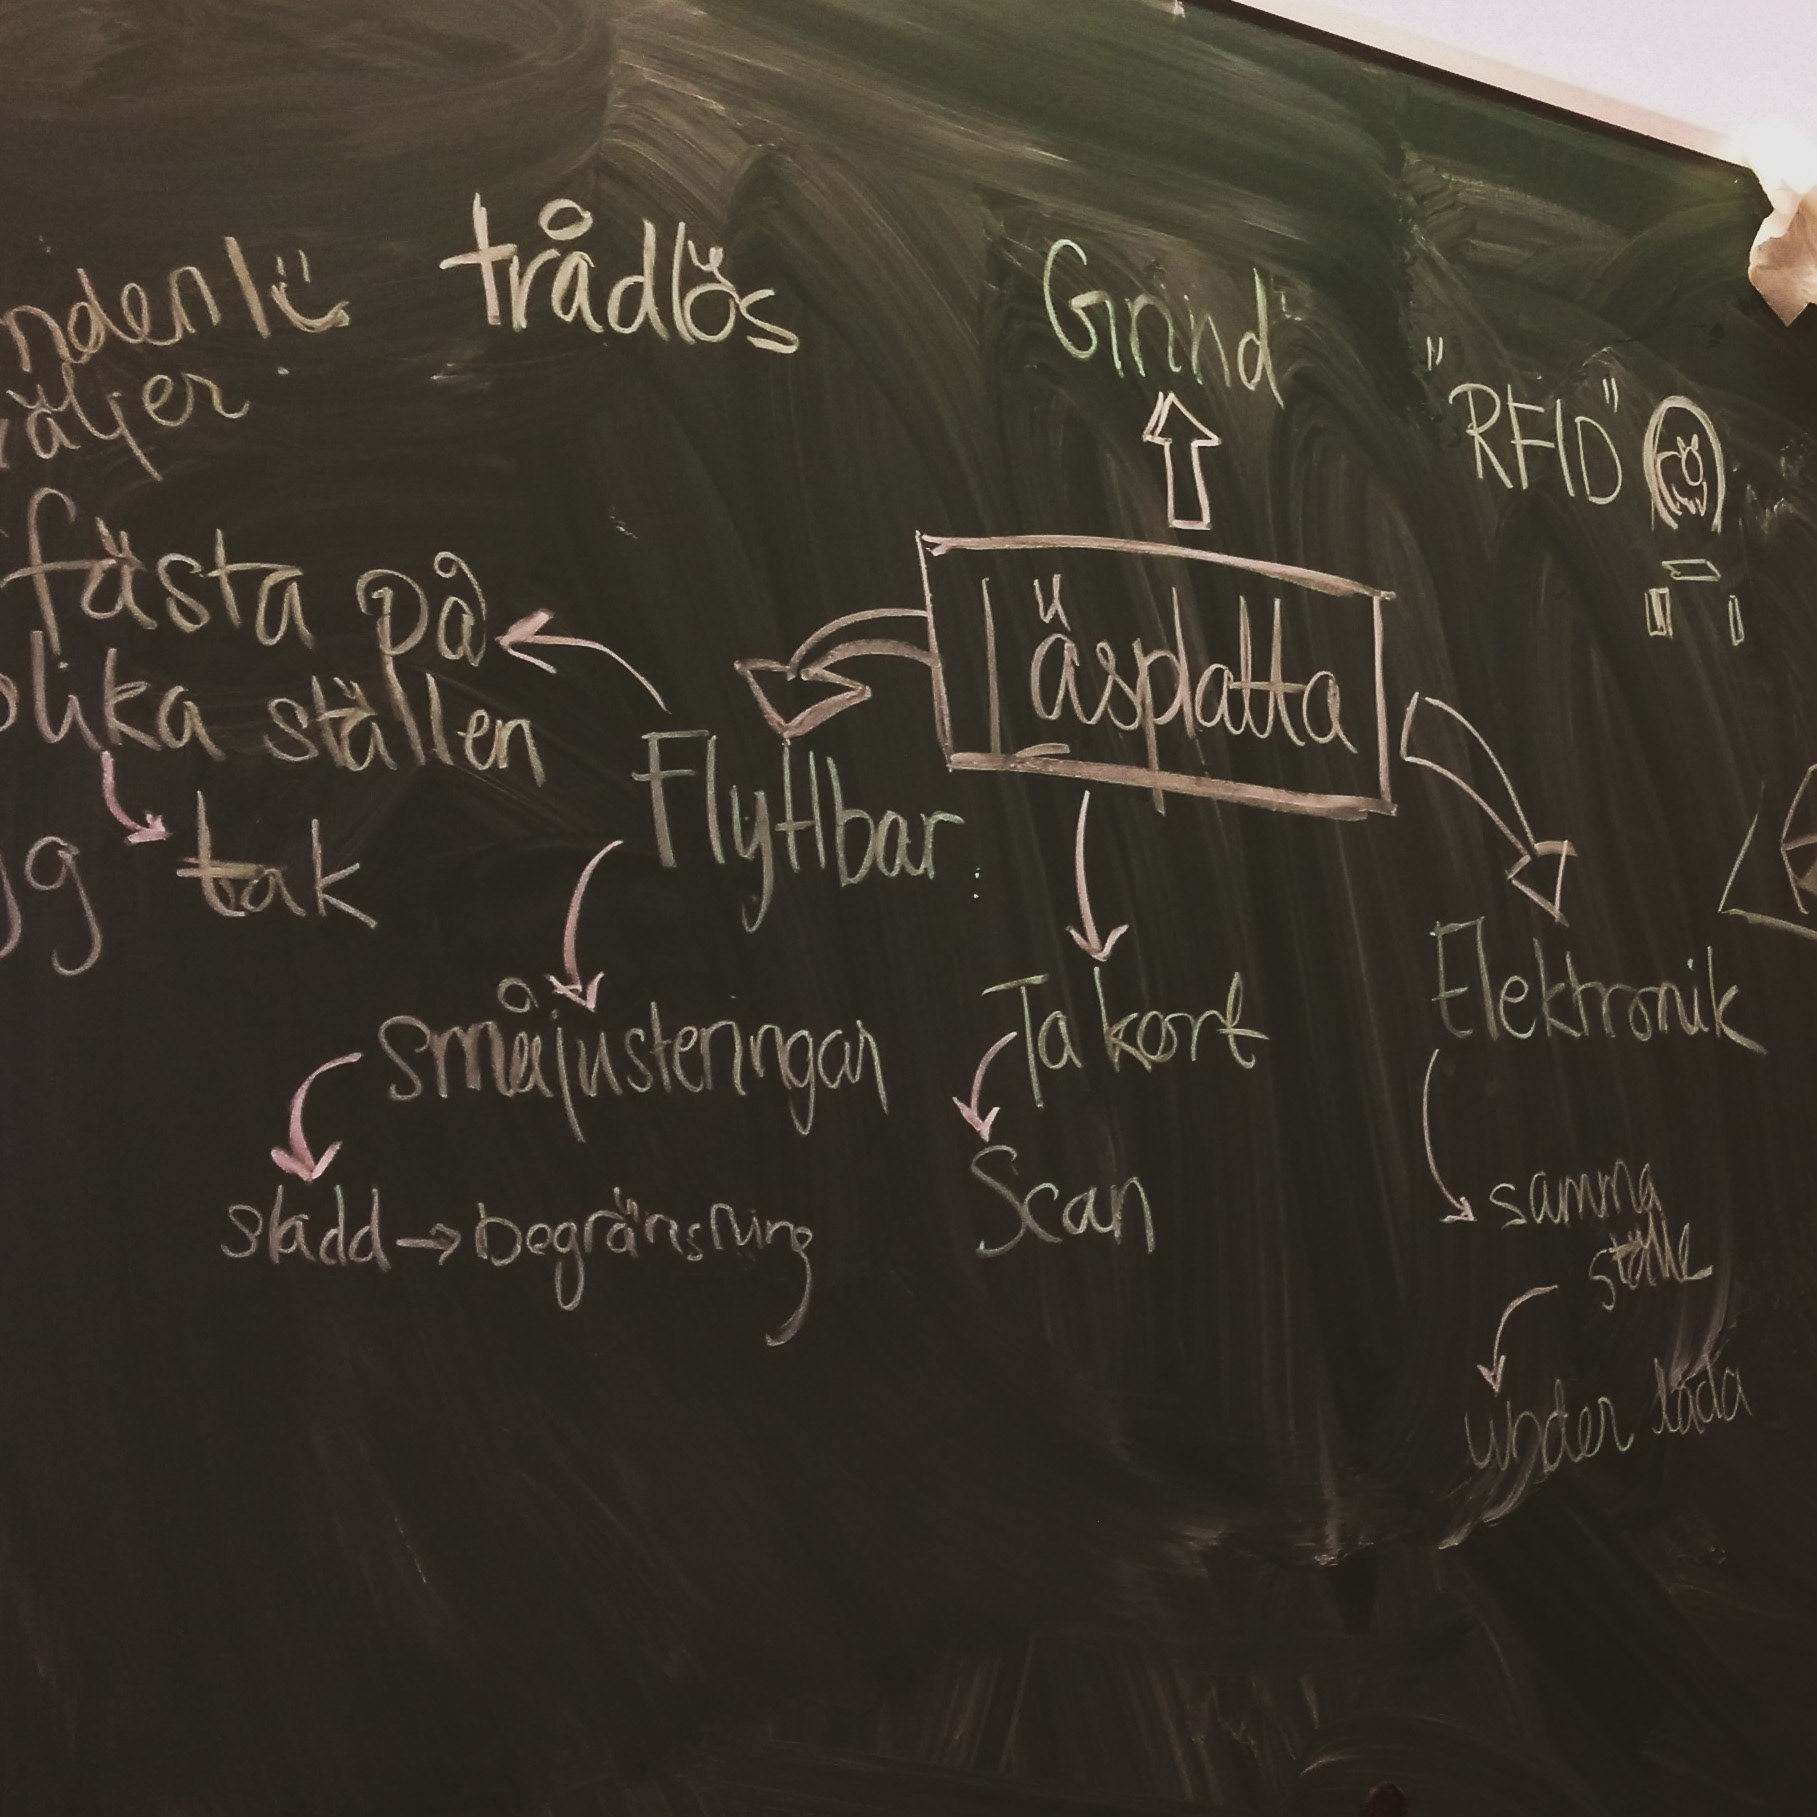 trådlös
Grind
"RFID"
väljer
fästa på
olika ställen
tak
läsplatta
Flyttbar
småjusteringar
sladd → begränsning
Ta kort
Scan
Elektronik
samma
ställe
under låda